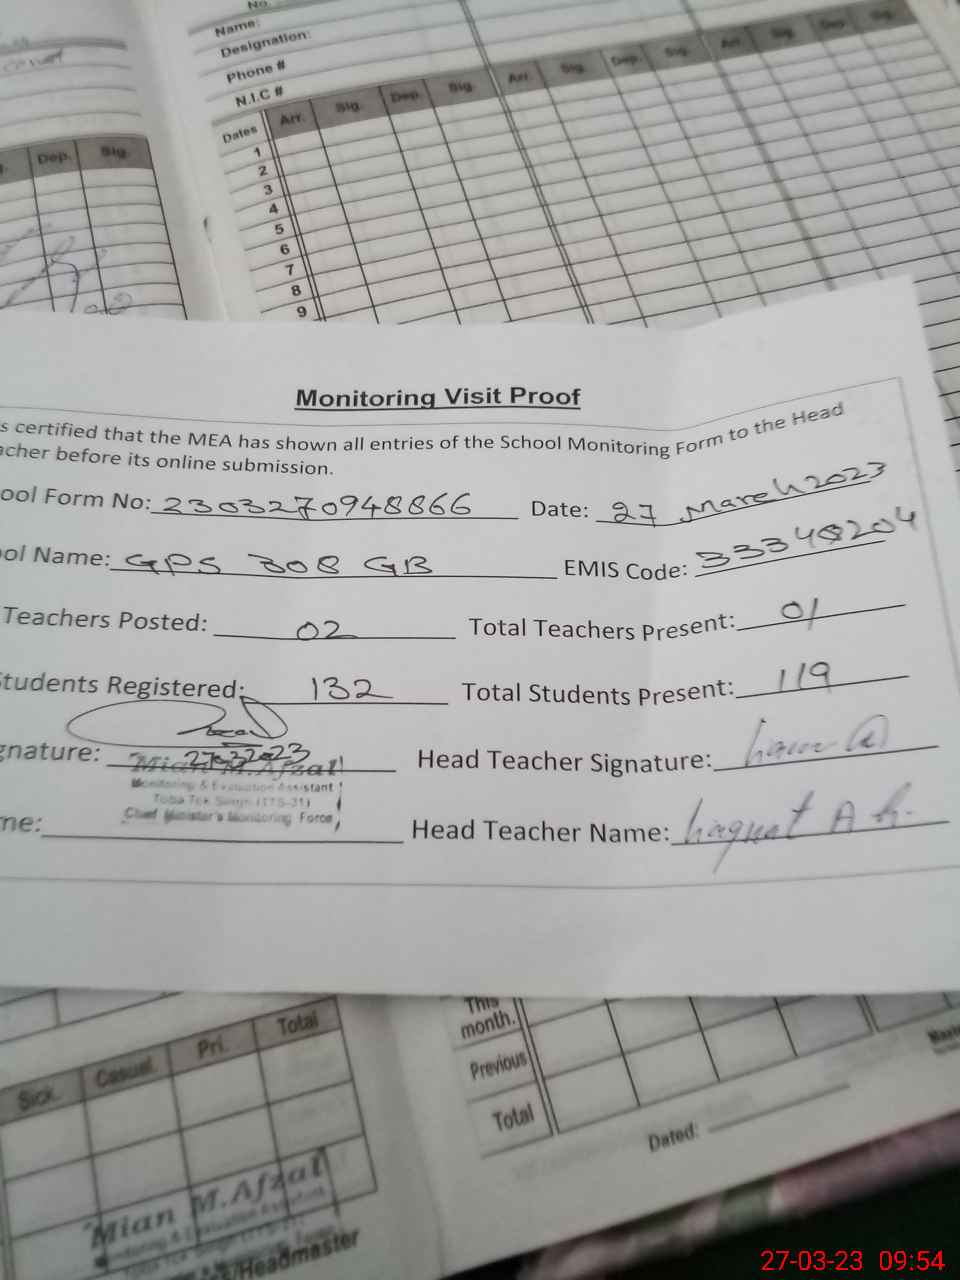 No.
Name:
Designation:
Phone #
N.I.C #
Dates Arr. Sig. Dep. Sig. Arr. Sig. Dep. Sig. Arr. Sig. Dep. Sig.
1
2
3
4
5
6
7
8
9
Dep. Sig.
Monitoring Visit Proof
s certified that the MEA has shown all entries of the School Monitoring Form to the Head
acher before its online submission.
ool Form No: 2303270948866 Date: 27 March 2023
ol Name: GPS 308 GB EMIS Code: 33340204
Teachers Posted: 02 Total Teachers Present: 01
Students Registered: 132 Total Students Present: 119
gnature: 27.3.2023 Head Teacher Signature:
Mian M.Afzal
Monitoring & Evaluation Assistant
Toba Tek Singh (TTS-31)
Chief Minister's Monitoring Force
me: Head Teacher Name: Liaquat Ali
Sick. Casual. Pri. Total
This month.
Previous
Total
Dated:
Mian M.Afzal
Monitoring & Evaluation Assistant
/Headmaster
27-03-23 09:54